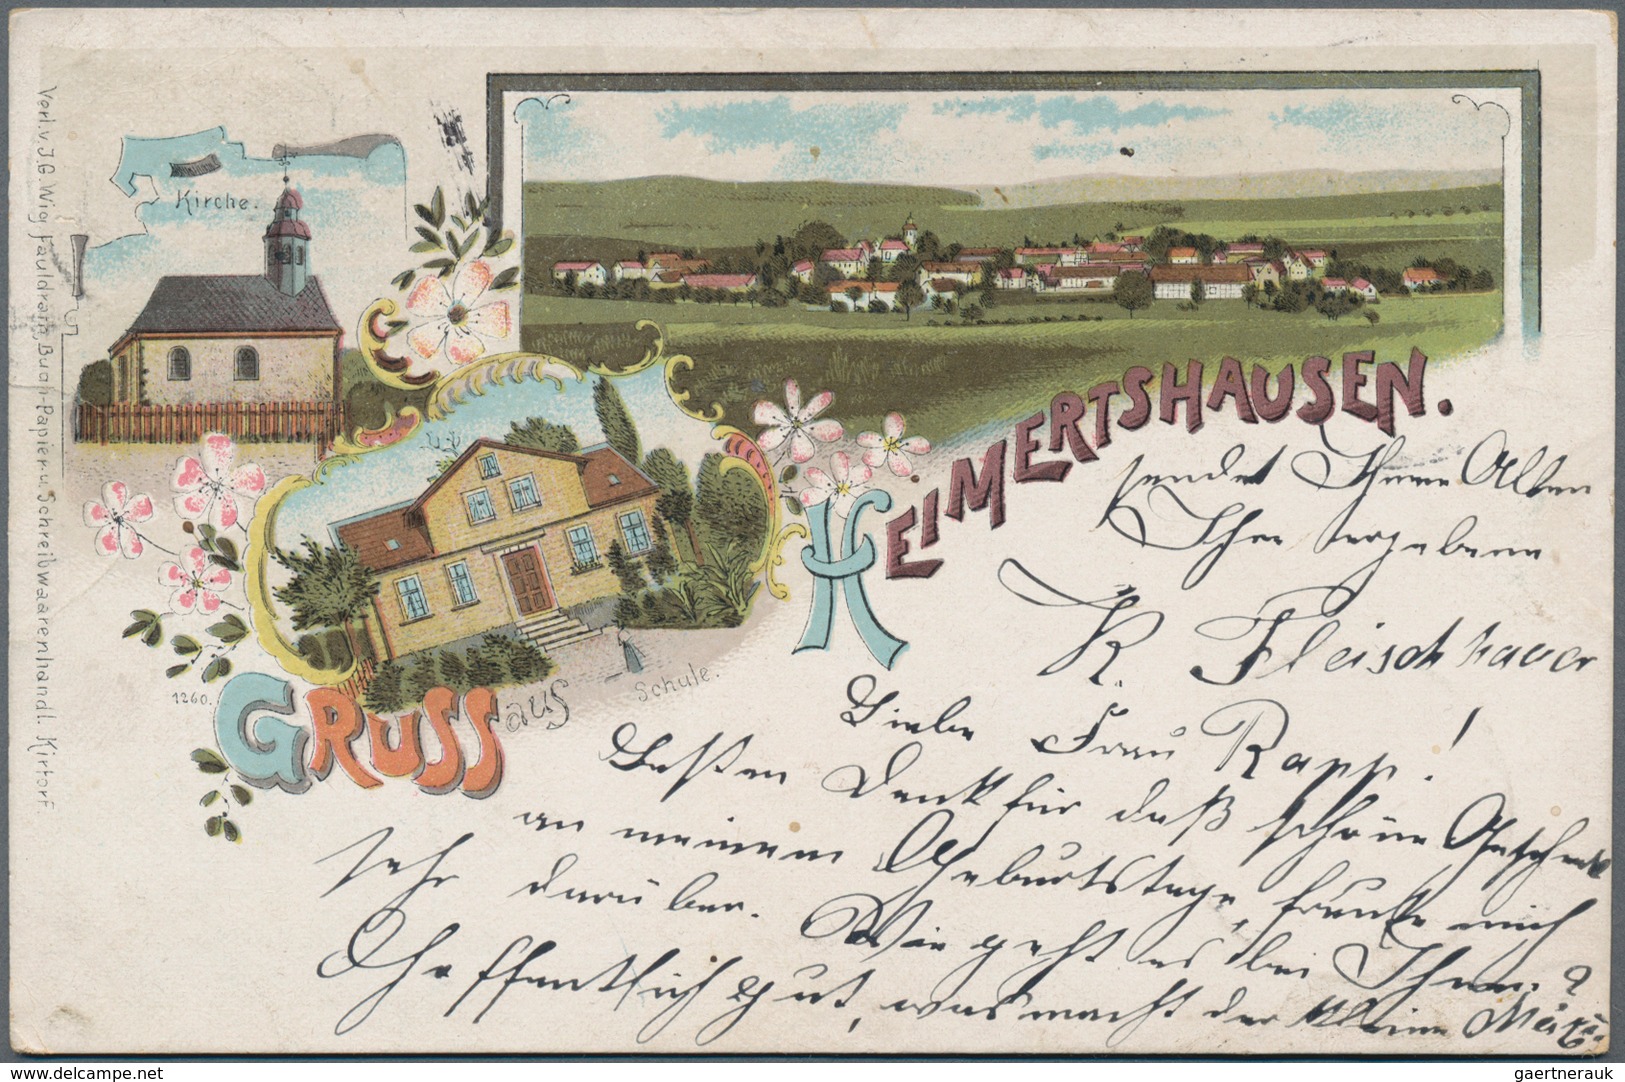 Verl. v. J. G. Wiegand, Buch-Papier u. Schreibwaarenhandl. Kirtorf.
Kirche.
1260.
Schule.
GRUSS aus
HEIMERTSHAUSEN.
sendet Ihnen Allen
Ihre ergebene
K. Fleischhauer
Liebe Frau Rapp!
Besten Dank für daß schöne Geschenk
an meinem Geburtstage, freute mich
sehr darüber. Wie geht es bei Ihnen?
Hoffentlich gut, was macht der kleine
delcampe.net
gaertnerauk